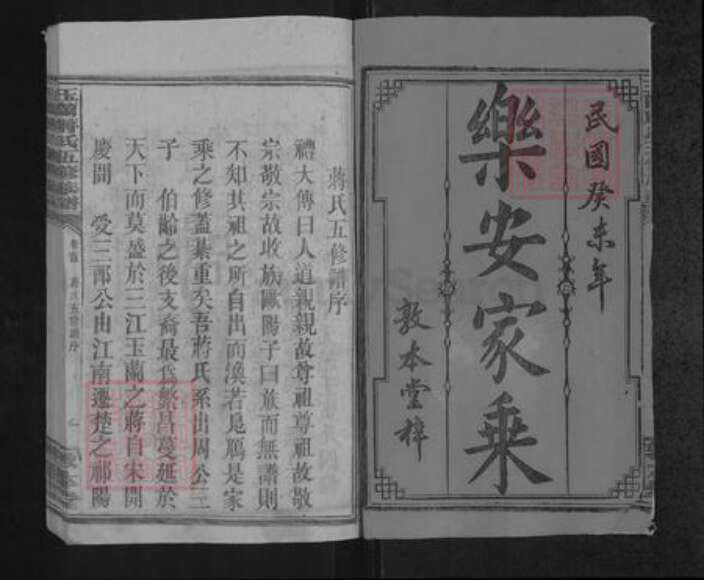 民國癸未年
樂安家乘
敦本堂梓
蔣氏五修譜序
禮大傳曰人道親親故尊祖尊祖故敬
宗敬宗故收族歐陽子曰族而無譜則
不知其祖之所自出而渙若鳧鴈是家
乘之修蓋綦重矣吾蔣氏系出周公三
子 伯齡之後支裔最爲繁昌蔓延於
天下而莫盛於三江玉蘭之蔣自宋開
慶間 愛三郎公由江南遷楚之祁陽
蔣氏五修族譜
卷首 蔣氏五修譜序